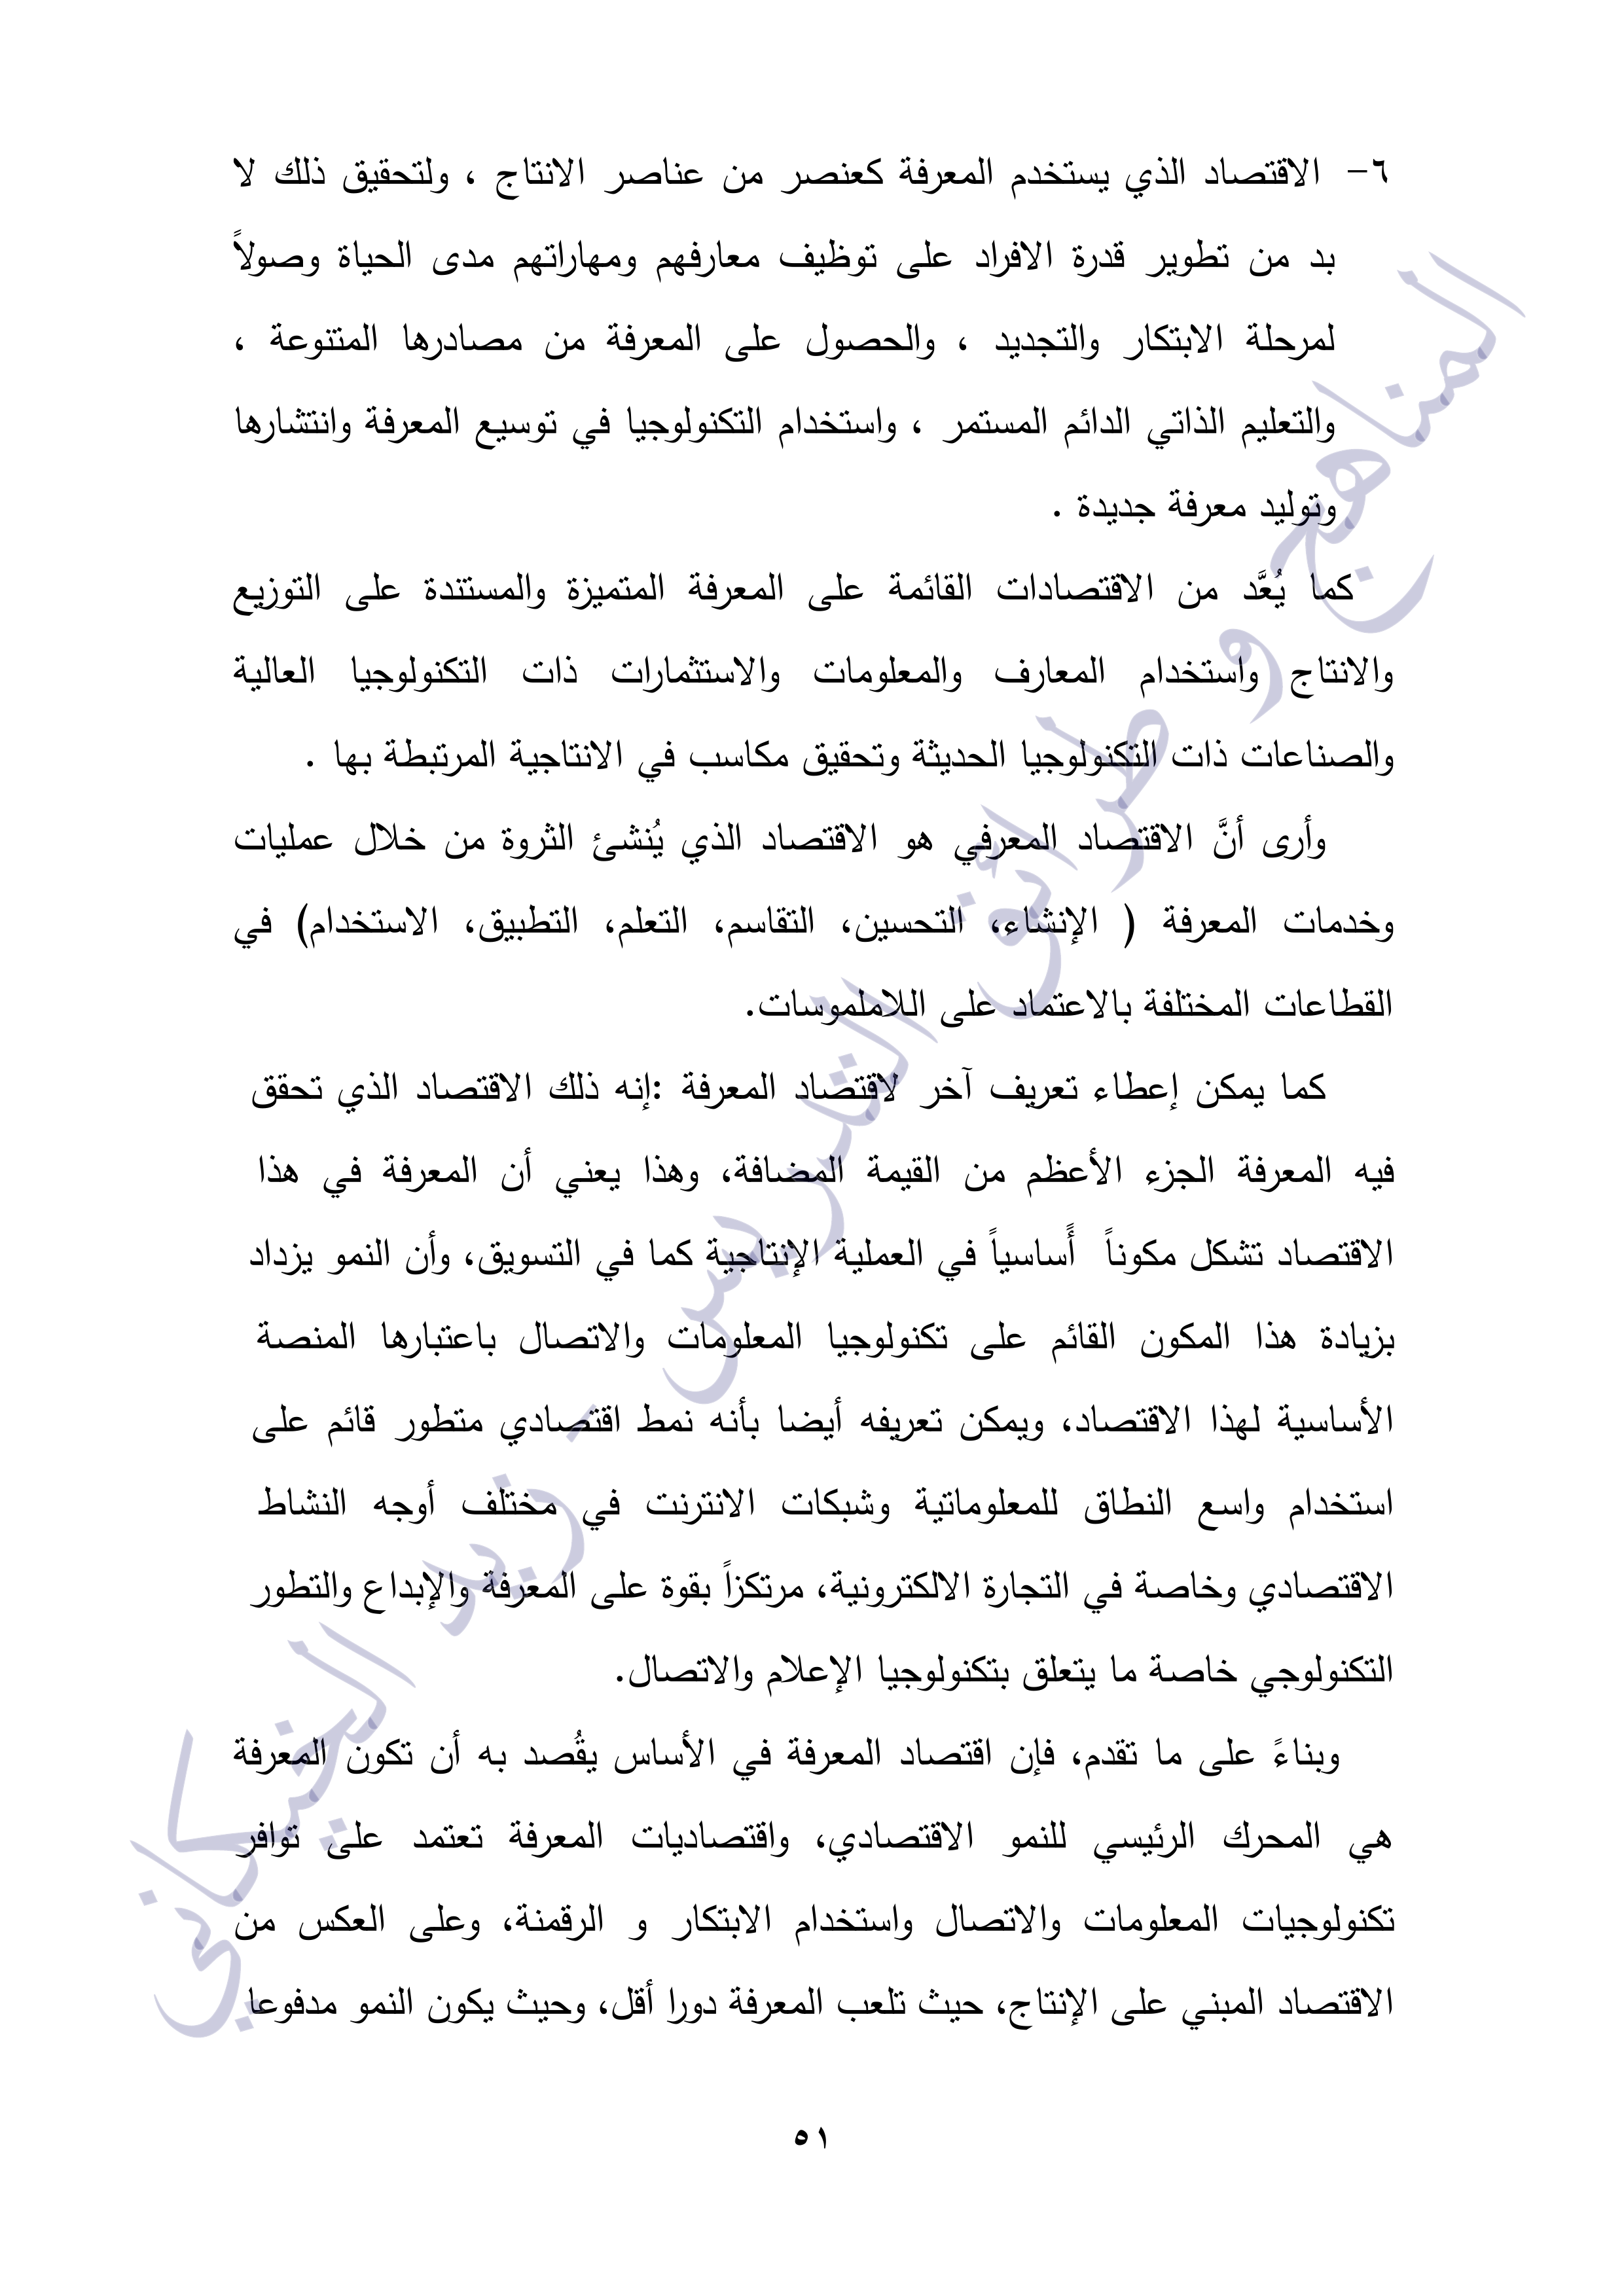 ٦- الاقتصاد الذي يستخدم المعرفة كعنصر من عناصر الانتاج ، ولتحقيق ذلك لا
بد من تطوير قدرة الافراد على توظيف معارفهم ومهاراتهم مدى الحياة وصولاً
لمرحلة الابتكار والتجديد ، والحصول على المعرفة من مصادرها المتنوعة ،
والتعليم الذاتي الدائم المستمر ، واستخدام التكنولوجيا في توسيع المعرفة وانتشارها
وتوليد معرفة جديدة .
كما يُعَّد من الاقتصادات القائمة على المعرفة المتميزة والمستندة على التوزيع
والانتاج واستخدام المعارف والمعلومات والاستثمارات ذات التكنولوجيا العالية
والصناعات ذات التكنولوجيا الحديثة وتحقيق مكاسب في الانتاجية المرتبطة بها .
وأرى أنَّ الاقتصاد المعرفي هو الاقتصاد الذي يُنشئ الثروة من خلال عمليات
وخدمات المعرفة ( الإنشاء، التحسين، التقاسم، التعلم، التطبيق، الاستخدام) في
القطاعات المختلفة بالاعتماد على اللاملموسات.
كما يمكن إعطاء تعريف آخر لاقتصاد المعرفة :إنه ذلك الاقتصاد الذي تحقق
فيه المعرفة الجزء الأعظم من القيمة المضافة، وهذا يعني أن المعرفة في هذا
الاقتصاد تشكل مكوناً أًساسياً في العملية الإنتاجية كما في التسويق، وأن النمو يزداد
بزيادة هذا المكون القائم على تكنولوجيا المعلومات والاتصال باعتبارها المنصة
الأساسية لهذا الاقتصاد، ويمكن تعريفه أيضا بأنه نمط اقتصادي متطور قائم على
استخدام واسع النطاق للمعلوماتية وشبكات الانترنت في مختلف أوجه النشاط
الاقتصادي وخاصة في التجارة الالكترونية، مرتكزاً بقوة على المعرفة والإبداع والتطور
التكنولوجي خاصة ما يتعلق بتكنولوجيا الإعلام والاتصال.
وبناءً على ما تقدم، فإن اقتصاد المعرفة في الأساس يقُصد به أن تكون المعرفة
هي المحرك الرئيسي للنمو الاقتصادي، واقتصاديات المعرفة تعتمد على توافر
تكنولوجيات المعلومات والاتصال واستخدام الابتكار و الرقمنة، وعلى العكس من
الاقتصاد المبني على الإنتاج، حيث تلعب المعرفة دورا أقل، وحيث يكون النمو مدفوعا
٥١
المناهج و طرائق التدريس - زيد الخيكاني